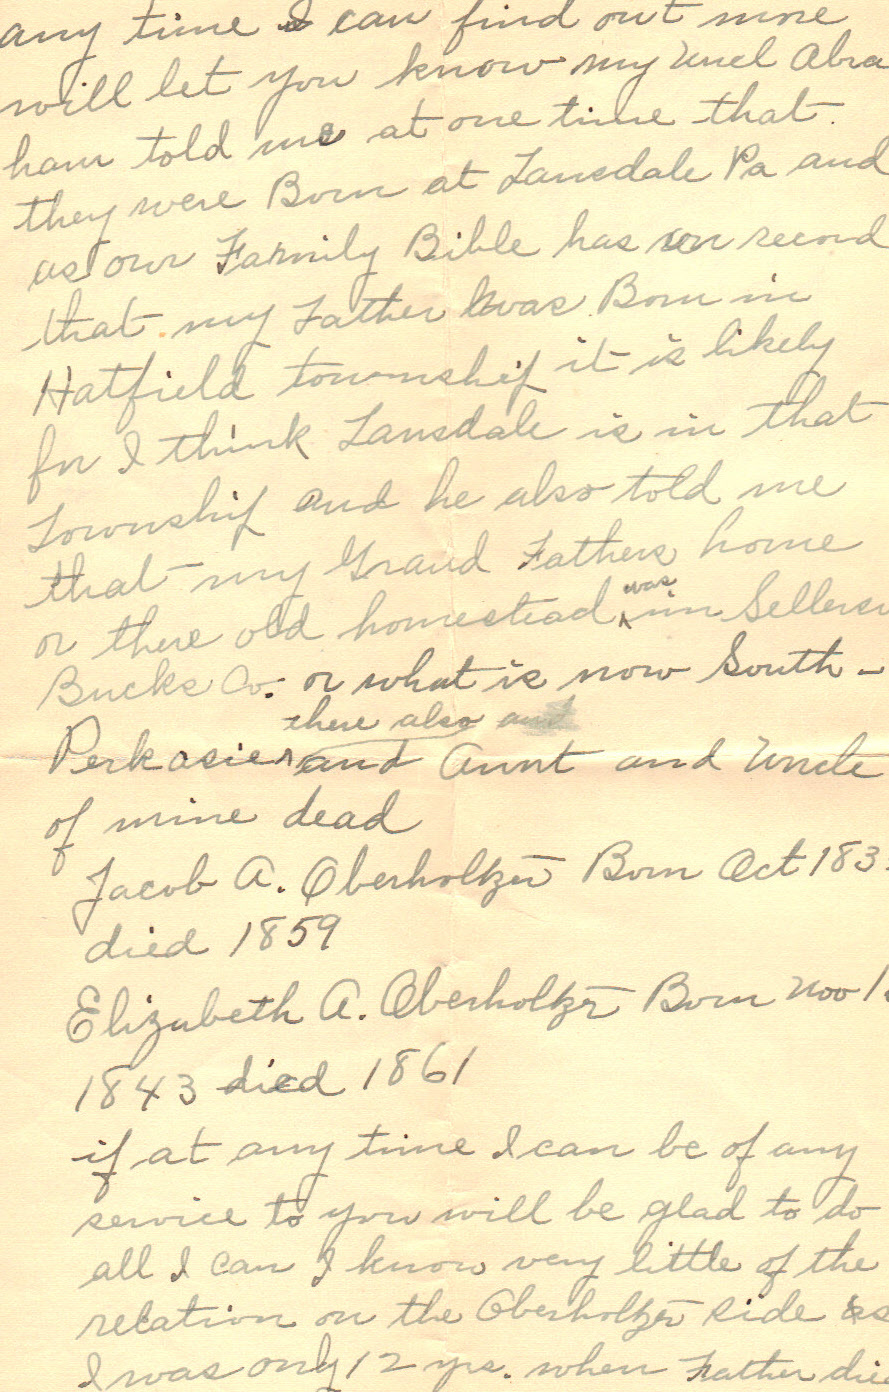 any time I can find out more
will let you know my Uncl Abra
ham told me at one time that
they were Born at Lansdale Pa and
as our Family Bible has on record
that my Father was Born in
Hatfield township it is likely
for I think Lansdale is in that
Township and he also told me
that my Grand Fathers home
or there old homestead was in Sellersv
Bucks Co. or what is now South -
there also and
Perkasie and Aunt and Uncle
of mine dead
Jacob A. Oberholtzer Born Oct 183
died 1859
Elizabeth A. Oberholtzer Born Nov 1
1843 died 1861
if at any time I can be of any
service to you will be glad to do
all I can I know very little of the
relation on the Oberholtzer side as
I was only 12 yrs. when Father die